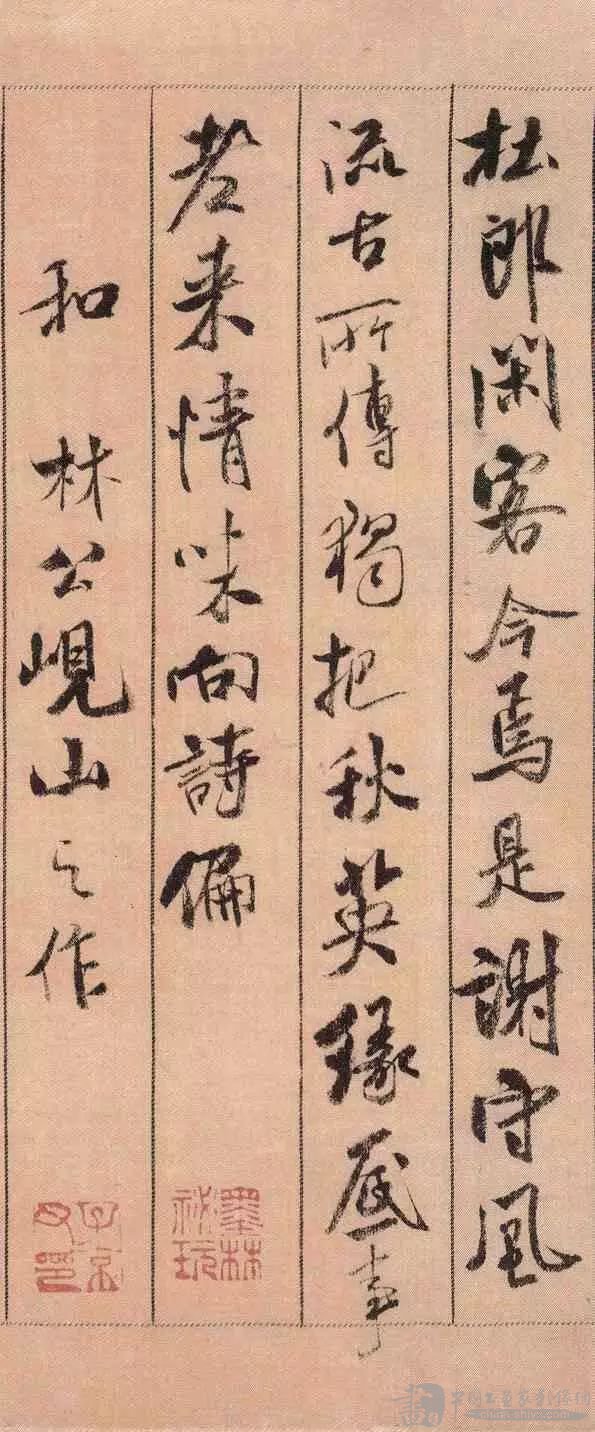 杜郎閑客今焉是謝守風
流古所傳獨把秋英緣底事
老来情味向詩偏
和林公峴山之作
墨林秘玩
子京父印